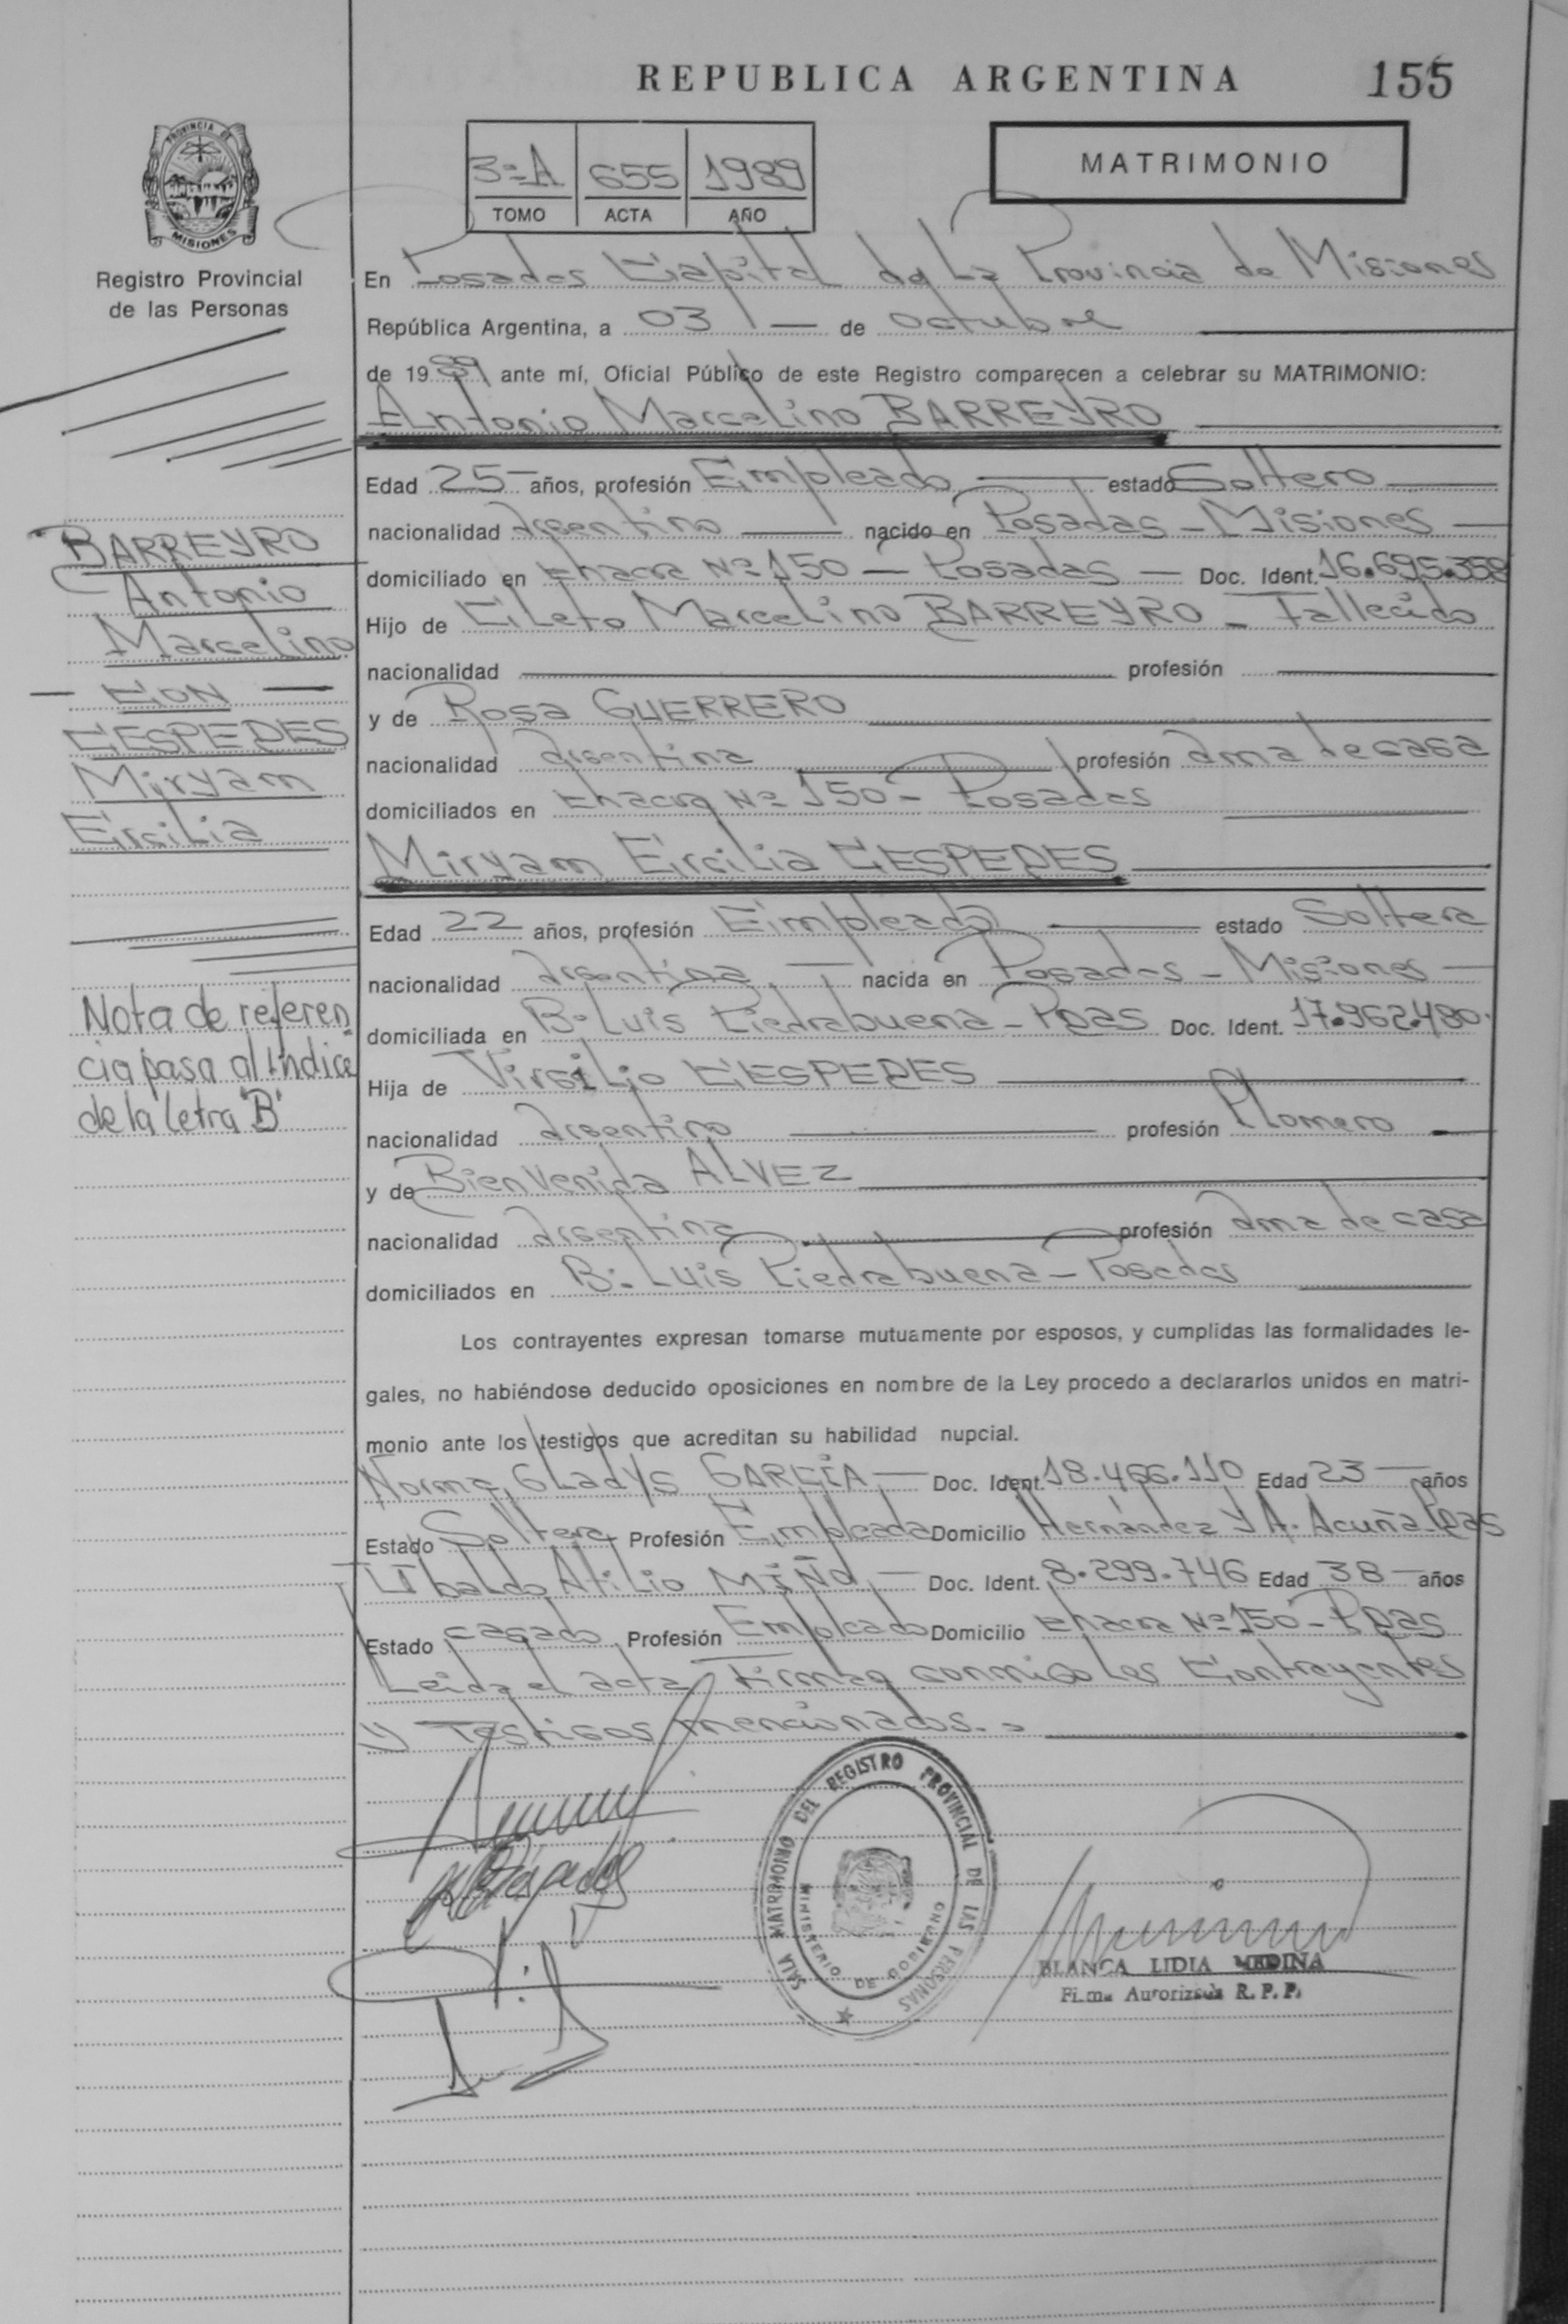 REPUBLICA ARGENTINA 155
PROVINCIA DE
MISIONES
Registro Provincial
de las Personas
3=A 655 1989
TOMO ACTA AÑO
MATRIMONIO
En Posadas Capital de La Provincia de Misiones
República Argentina, a 03 — de octubre
de 1989 ante mí, Oficial Público de este Registro comparecen a celebrar su MATRIMONIO:
Antonio Marcelino BARREYRO
Edad 25 años, profesión Empleado estado Soltero
nacionalidad Argentino nacido en Posadas - Misiones
domiciliado en Chacra Nº 150 - Posadas - Doc. Ident. 16.695.358
Hijo de Cileto Marcelino BARREYRO - Fallecido
nacionalidad profesión
y de Rosa GUERRERO
nacionalidad Argentina profesión ama de casa
domiciliados en Chacra Nº 150 - Posadas
Miryam Ercilia CESPEDES
Edad 22 años, profesión Empleada estado Soltera
nacionalidad Argentina nacida en Posadas - Misiones
domiciliada en Bº Luis Piedrabuena - Pdas Doc. Ident. 17.962.480.
Hija de Virgilio CESPEDES
nacionalidad Argentino profesión Plomero
y de Bienvenida ALVEZ
nacionalidad Argentina profesión ama de casa
domiciliados en Bº Luis Piedrabuena - Posadas
Los contrayentes expresan tomarse mutuamente por esposos, y cumplidas las formalidades le-
gales, no habiéndose deducido oposiciones en nombre de la Ley procedo a declararlos unidos en matri-
monio ante los testigos que acreditan su habilidad nupcial.
Norma Gladys GARCÍA - Doc. Ident. 18.466.110 Edad 23 años
Estado Soltera Profesión Empleada Domicilio Hernández y A. Acuña Pdas
Ubaldo Atilio MIÑO - Doc. Ident. 8.299.746 Edad 38 años
Estado casado Profesión Empleado Domicilio Chacra Nº 150 - Pdas
Leida el acta, Firman conmigo los Contrayentes
y Testigos mencionados.
BARREYRO
Antonio
Marcelino
— CON —
CESPEDES
Miryam
Ercilia
Nota de referen
cia pasa al Indice
de la letra "B"
SALA MATRIMONIO DEL REGISTRO PROVINCIAL DE LAS PERSONAS
MINISTERIO DE GOBIERNO
BLANCA LIDIA MEDINA
Firma Autorizada R. P. P.